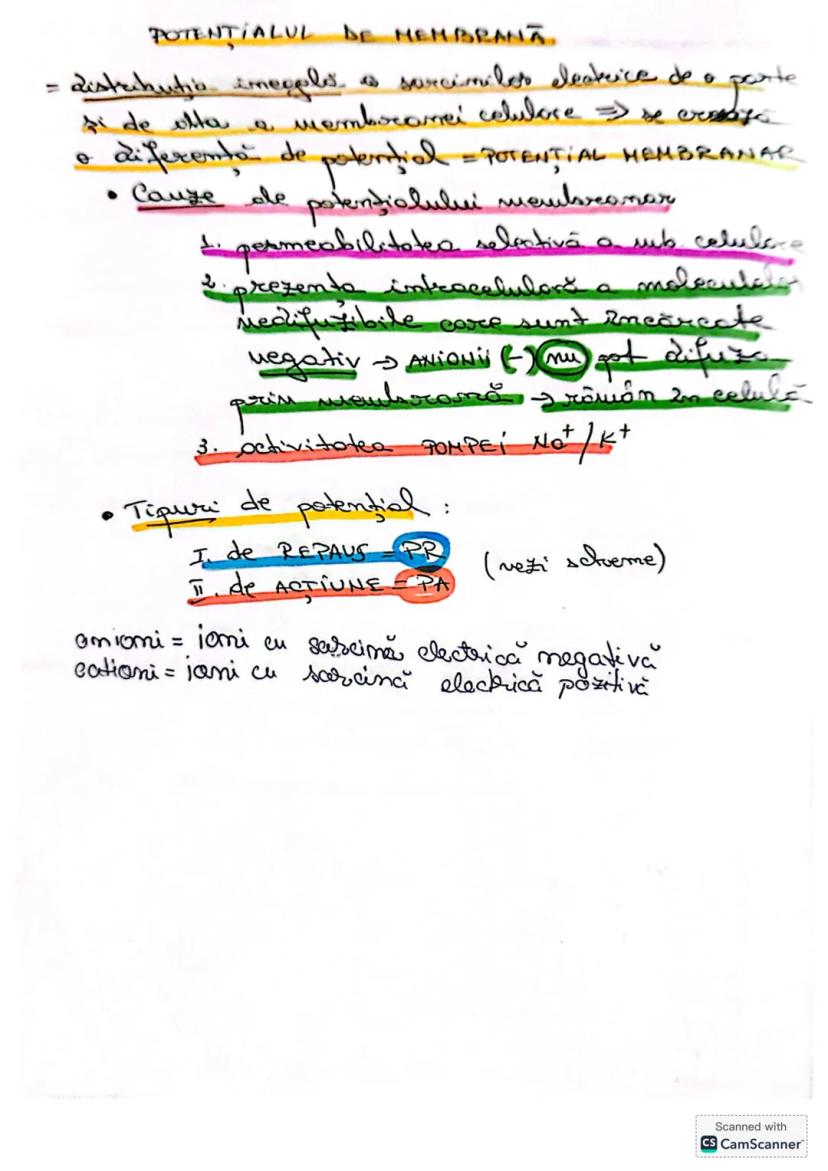 POTENȚIALUL DE MEMBRANĂ
= distribuția inegală a sarcinilor electrice de o parte
și de alta a membranei celulare => se creează
o diferență de potențial = POTENȚIAL MEMBRANAR
• Cauze ale potențialului membranar
1. permeabilitatea selectivă a sub. celulare
2. prezența intracelulară a moleculelor
nedifuzibile care sunt încărcate
negativ → ANIONII (-) nu pot difuza
prin membrană → rămân în celulă
3. activitatea POMPEI Na⁺/K⁺
• Tipuri de potențial :
I. de REPAUS = PR
II. de ACȚIUNE = PA
(vezi scheme)
anioni = ioni cu sarcină electrică negativă
cationi = ioni cu sarcină electrică pozitivă
Scanned with
CS CamScanner